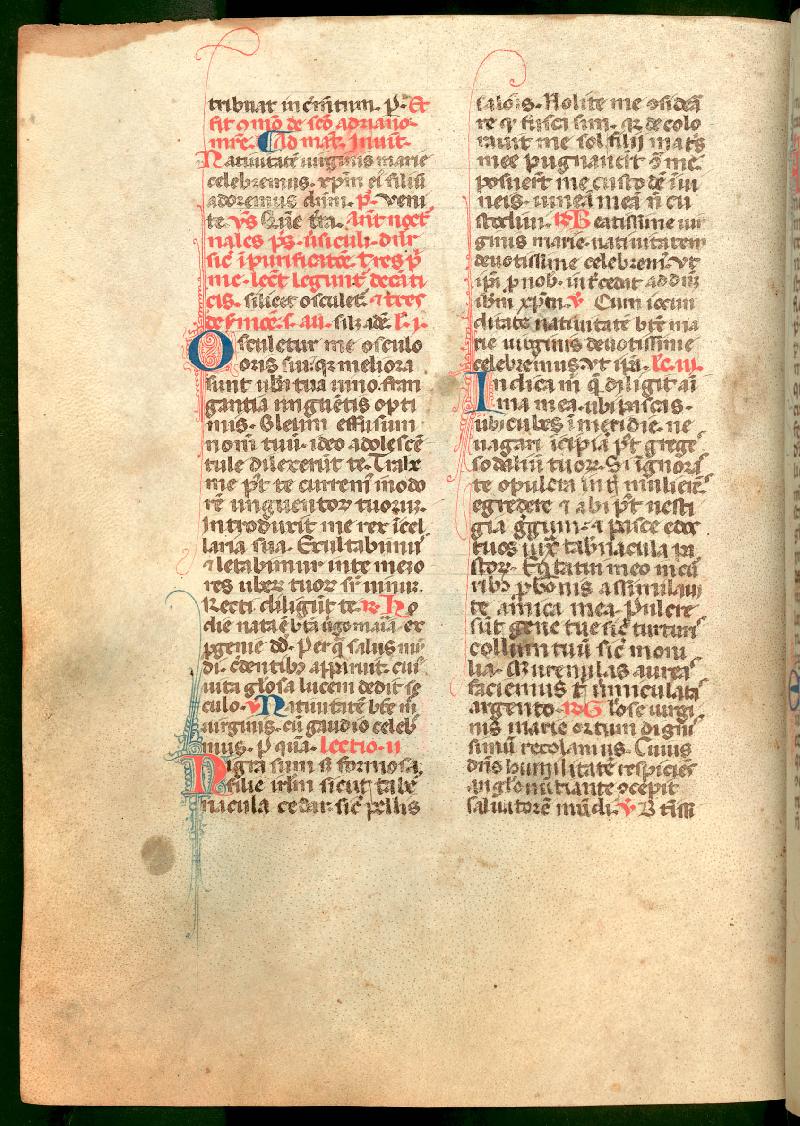 tribuat incrm̃tum. p̃. Et
fit 9mo de sc̃o adriano
mr̃e. Ad mat̃. Inuit.
Natiuitatẽ uirginis marie
celebremus. xp̃m ei filiũ
adoremus dñm. p̃. Veni
te. vs̃
nales p̃s.
sic̃ ĩ purificatõe. tres p̃
me. lect̃ legunt̃ de cãti
cis. silicet osculet̃. ⁊ tres
Osculetur me osculo
oris sui. qr meliora
sunt ubera tua uino. fra
gantia unguẽtis opti
mis. Oleum effusum
nom̃ tuũ. ideo adolescẽ
tule dilexerũt te. Trahe
me p̃t te curremꝰ in odo
rẽ unguentoꝝ tuorum.
Introduxit me rex ĩ cel
laria sua. Exultabimꝰ
⁊ letabimur in te meio
res uberũ tuoꝝ sr̃ uinum.
Recti diligũt te. ℟. Ho
die nata ẽ bt̃a ũgo maria ex
pgenie dd̃. Per q̃ salus mũ
di. c̃dentibꝫ apparuit. cuiꝰ
uita gl̃osa lucem dedit se
culo. ℣. Natiuitatẽ bt̃e m̃
uirginis. cũ gaudio celeb̃
mus. p̃ quã. lectio. ii
Nigra sum ⁊ formosa.
filie irl̃m sicut tab̃
nacula cedar. sic̃ pellis
salõis. Nolite me 9sidea
re qꝫ fusci sim. qꝛ decolo
rauit me sol. filij mat̃s
mee pugnauer̃t 9̃ me.
posuer̃t me custodẽ ĩ ui
neis. uineã meã ñ cu
stodiui. ℟. Beatissime uir
ginis marie natiuitatem
deuotissime celebremꝰ. Vt
ip̃a p̃ nob̃. int̃cedat ad dñm
ih̃m xp̃m. ℣. Cum iocun
ditate natiuitatẽ bt̃e ma
rie uirginis deuotissime
celebremus. Vt ip̃a. lc̃. iii.
Indica m̃ q̃ diligit aĩ
ma mea. ubi pascis.
ubi cubes ĩ meridie. ne
uagari ĩcipiã p̃t grege
sodaliũ tuoꝝ. Si ignoras
te o pulcra int̃ mulieres
egredere ⁊ abi p̃t uesti
gia g̃gum. ⁊ pasce edos
tuos iux̃ tab̃nacula pa
stoꝝ. Eq̃tatui meo ĩ cur
ribꝫ pharaonis assimilaui
te amica mea. Pulcre
sũt gene tue sic̃ turturis
collum tuũ sic̃ moni
lia. Murenulas aureas
faciemus t̃ uermiculatas
argento. ℟. Gl̃ose uirgi
nis marie ortum digniſ
simũ recolamus. Cuius
dñs humilitatẽ respiciẽs
anglo nuntiante 9cepit
saluatorẽ mũdi. ℣. B̃tissi